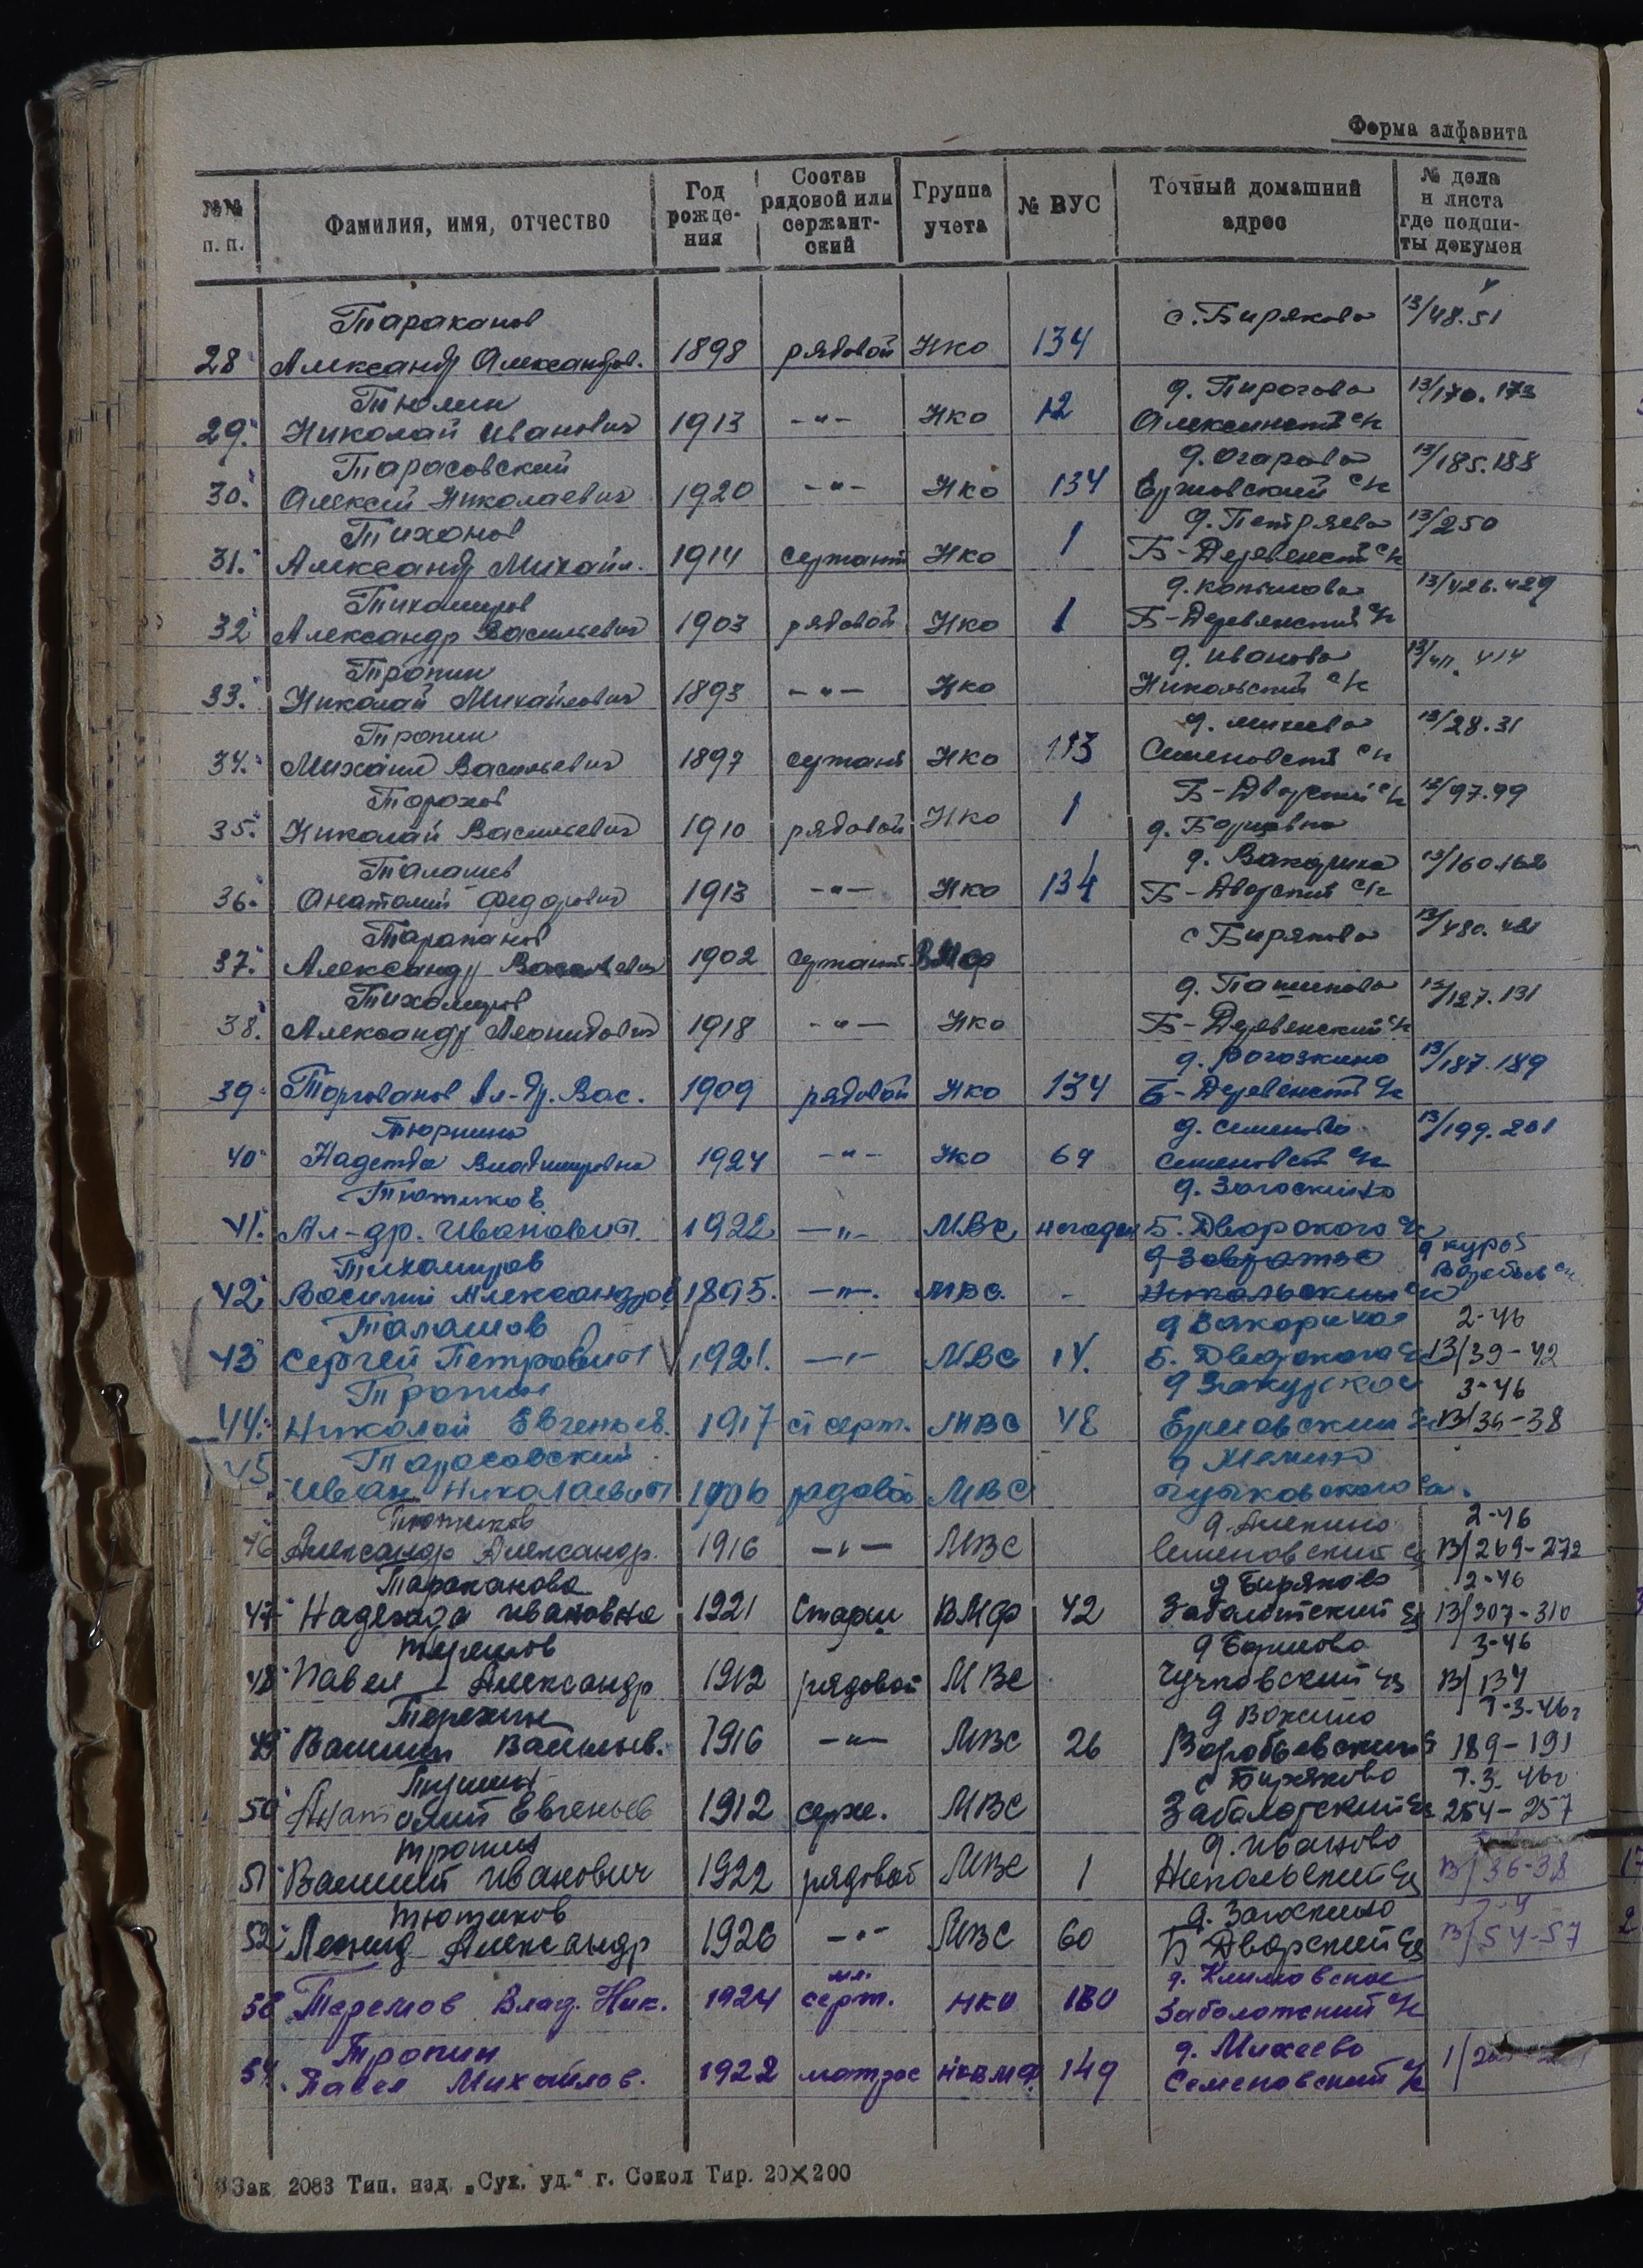 Форма алфавита
№№ п. п.
Фамилия, имя, отчество
Год рожде-ния
Состав рядовой или сержант-ский
Группа учета
№ ВУС
Точный домашний адрес
№ дела и листа где подши-ты докумен
Тараканов с. Биряково 13/48.51
28 Александр Александров. 1898 рядовой Нко 134
Тюлин д. Пирогово 13/170.173
29. Николай Иванович 1913 -"- Нко 12 Алексинский с/с
Тарасовский д. Огарово 13/185.188
30. Алексей Николаевич 1920 -"- Нко 134 с/с
Тихонов д. Петряево 13/250
31. Александр Михайл. 1914 сержант Нко 1 Б-Деревенский с/с
Тихомиров д. 13/426.429
32 Александр Васильевич 1903 рядовой Нко 1 Б-Деревенский с/с
Тропин д. Иваново 13/411. 414
33. Николай Михайлович 1893 -"- Нко Никольский с/с
Тропин д. 13/28.31
34. Михаил Васильевич 1897 сержант Нко 113 Семеновский с/с
Торохов Б-Дворский с/с 13/97.99
35. Николай Васильевич 1910 рядовой Нко 1 д.
Талашев д. Вакорино 13/160.162
36. Анатолий Федорович 1913 -"- Нко 134 Б-Дворский с/с
Тараканов с Бирякова 13/480.481
37. Александр Васильевич 1902 сержант ВМФ
Тихомиров д. 13/127.131
38. Александр Леонидович 1918 -"- Нко Б-Деревенский с/с
д. Рогозкино 13/187.189
39 Торгованов Ал-др. Вас. 1909 рядовой Нко 134 Б-Деревенский с/с
д. Семеново 13/199.201
40 Надежда Владимировна 1924 -"- Нко 69 Семеновский с/с
Тютиков д. Загоскино
41. Ал-др. Иванович 1922 -"- МВС Б. Дворского с/с
Тихомиров д Завражье д куро
42 Василий Александров 1895. -"- МВС. - Никольский с/с
Талашов д Вакорино 2-46
43 Сергей Петрович 1921. -"- МВС 14. Б. Дворского с/с 13/39-42
Тропин д 3-46
44. Николай Евгеньев. 1917 ст серж. МВС 48 Ермовский с/с 13/36-38
Тарасовский д
45 Иван Николаевич 1906 рядовой МВС Чучковского с/с.
Тютиков д. Аленино 2-46
46 Александр Александр. 1916 -"- МВС Семеновский с/с 13/269-272
Тараканова д Биряково 2-46
47 Надежда Ивановна 1921 Старш ВМФ 42 Заболотский с/с 13/307-310
Теремов д 3-46
48 Павел Александр 1912 рядовой МВС Чучковский с/с 13/134
Терехин д Вокшино 7-3-46г
49 Василий Васильев. 1916 -"- МВС 26 Воробьевский 189-191
с Биряково 7.3.46г
50 Анатолий Евгеньев 1912 серж. МВС Заболотский с/с 254-257
Тропин д. Иваново
51 Василий Иванович 1922 рядовой МВС 1 Никольский с/с 13/36-38
Тютиков д. Загоскино
52 Леонид Александр 1926 -"- МВС 60 Б Дворский с/с 13/54-57
мл. д. Климовское
53 Теремов Влад. Ник. 1924 серж. НКО 180 Заболотский с/с
Тропин д. Михеево
54. Павел Михайлов. 1922 матрос НКВМФ 149 Семеновский с/с
Зак 2083 Тип. изд. „Сух. уд.“ г. Сокол Тир. 20×200